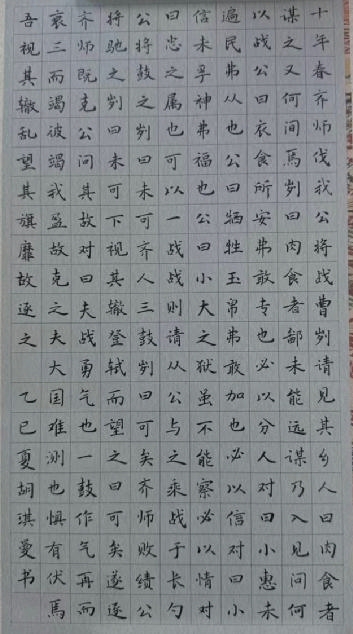 十年春齐师伐我公将战曹刿请见其乡人曰肉食者
谋之又何间焉刿曰肉食者鄙未能远谋乃入见问何
以战公曰衣食所安弗敢专也必以分人对曰小惠未
遍民弗从也公曰牺牲玉帛弗敢加也必以信对曰小
信未孚神弗福也公曰小大之狱虽不能察必以情对
曰忠之属也可以一战战则请从公与之乘战于长勺
公将鼓之刿曰未可齐人三鼓刿曰可矣齐师败绩公
将驰之刿曰未可下视其辙登轼而望之曰可矣遂逐
齐师既克公问其故对曰夫战勇气也一鼓作气再而
衰三而竭彼竭我盈故克之夫大国难测也惧有伏焉
吾视其辙乱望其旗靡故逐之 乙巳夏胡琪曼书